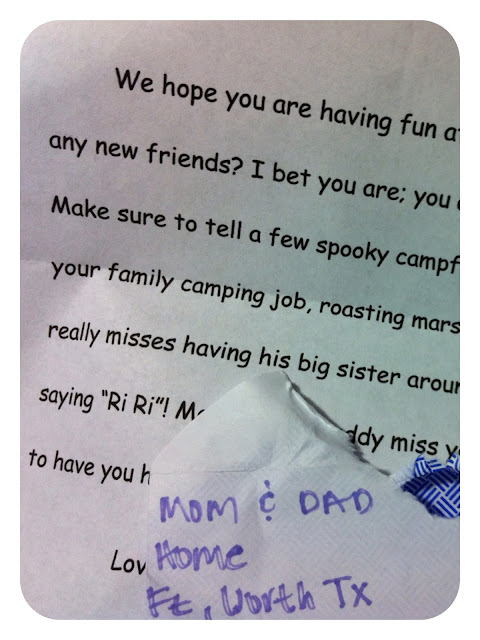 We hope you are having fun
any new friends? I bet you are; you
Make sure to tell a few spooky
your family camping job, roasting
really misses having his big sister
saying "Ri Ri"! miss
to have you
MOM & DAD
Home
Ft, Worth Tx